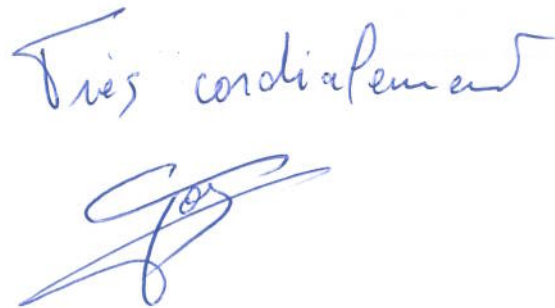 Très cordialement